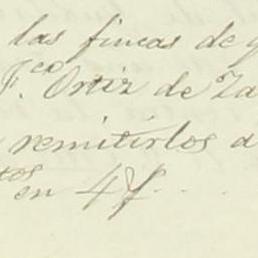 las fincas de
F.ca Ortiz de Za
remitirlos a
tos en 4 f...